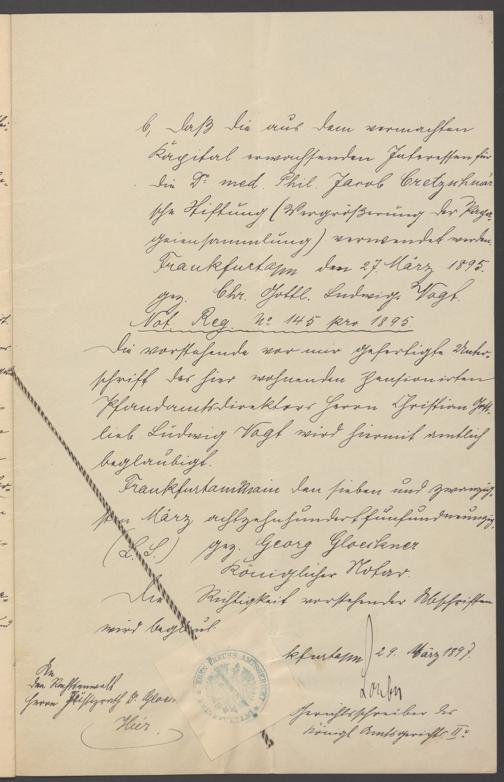 9
b, daß die aus dem vermachten
Kapital erwachsenden Interessen für
die Dr. med. Phil. Jacob Cretzschmar
sche Stiftung (Vergrößerung der Papa-
geiensammlung) verwendet werden
Frankfurt a/m den 27 März 1895.
gez. Chr. Gottl. Ludwig Vogt.
Not. Reg. No 145 pro 1895
Die vorstehende vor mir gefertigte Unter-
schrift des hier wohnenden pensionirten
Pfandamtsdirektors Herrn Christian Gott-
lieb Ludwig Vogt wird hiermit amtlich
beglaubigt.
Frankfurt am Main den sieben und zwanzig-
sten März achtzehnhundertfünfundneunzig.
(L. S.) gez. Georg Gloeckner
Königlicher Notar.
Die Richtigkeit vorstehender Abschriften
wird beglaubt.
kfurt a/m 29. März 1897.
Gerichtsschreiber des
Königl. Amtsgerichts II.
An
den Rechtsanwalt
Herrn Justizrath Dr.
Hier.